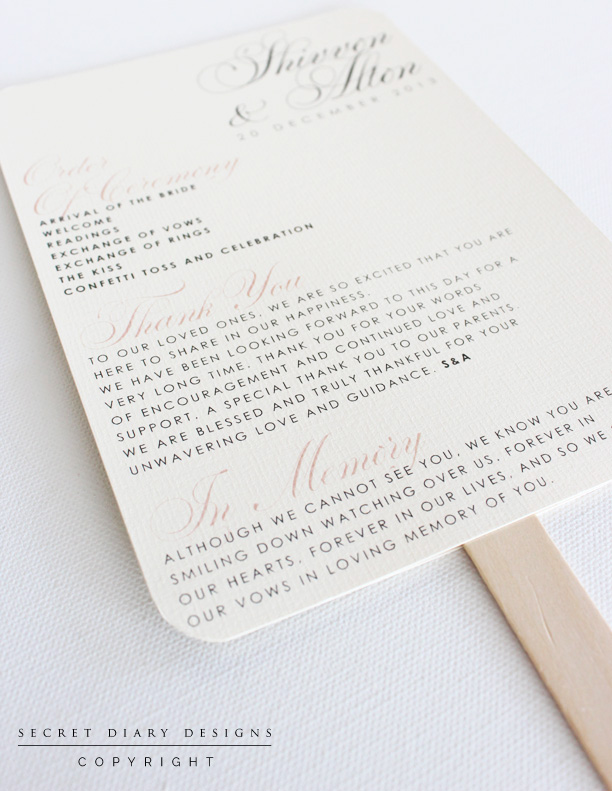 Shivvon
& Alton
20 DECEMBER 2013
Order
Of Ceremony
ARRIVAL OF THE BRIDE
WELCOME
READINGS
EXCHANGE OF VOWS
EXCHANGE OF RINGS
THE KISS
CONFETTI TOSS AND CELEBRATION
Thank You
TO OUR LOVED ONES, WE ARE SO EXCITED THAT YOU ARE
HERE TO SHARE IN OUR HAPPINESS.
WE HAVE BEEN LOOKING FORWARD TO THIS DAY FOR A
VERY LONG TIME. THANK YOU FOR YOUR WORDS
OF ENCOURAGEMENT AND CONTINUED LOVE AND
SUPPORT. A SPECIAL THANK YOU TO OUR PARENTS.
WE ARE BLESSED AND TRULY THANKFUL FOR YOUR
UNWAVERING LOVE AND GUIDANCE. S&A
In Memory
ALTHOUGH WE CANNOT SEE YOU, WE KNOW YOU ARE
SMILING DOWN WATCHING OVER US. FOREVER IN
OUR HEARTS, FOREVER IN OUR LIVES, AND SO WE
OUR VOWS IN LOVING MEMORY OF YOU.
SECRET DIARY DESIGNS
COPYRIGHT